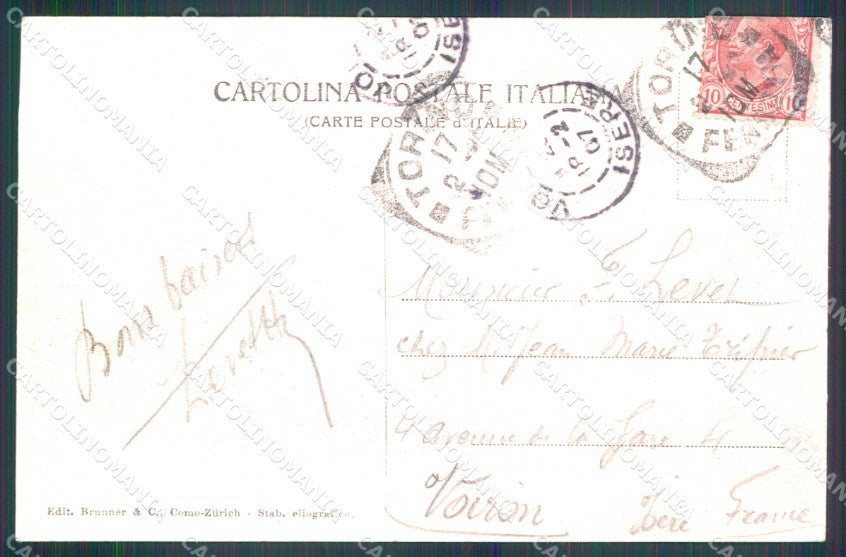 CARTOLINA POSTALE ITALIANA
(CARTE POSTALE d'ITALIE)
TORINO
17
FERROVIA
10 CENTESIMI 10
TORINO
17
2
ISERE
07
ISERE
07
Bons baisers
Monsieur F. Level
chez M. Jean Marie
4 Avenue de la Gare 4
Voiron Isère France
Edit. Brunner & C., Como-Zürich - Stab. eliografico.
CARTOLINOMANIA